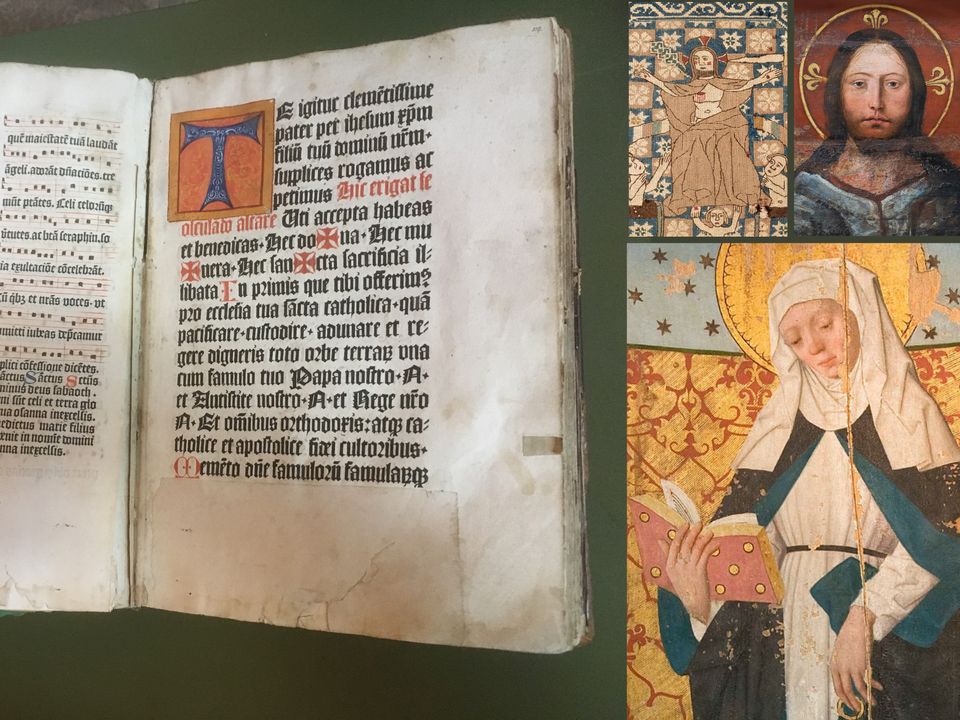 quē maiestatē tuā laudāt
āgeli. adorāt dn̄atiōes. tre
mūt ptātes. Celi celorūqȝ
v̄tutes. ac btā seraphin. so
ia exultatiōe cōcelebrāt.
cū qbȝ et nr̄as voces. vt
mitti iubeas dep̄camur
plici cōfessione dicētes.
āctus Sāctus Sctūs
minus deus sabaoth.
ni sūt celi et terra glo
ua osanna inexcelsis.
nedictus marie filius
venit in nomīe domini
anna inexcelsis.
TE igitur clemētissime
pater per ihesum xp̄m
filiū tuū dominū nr̄m·
supplices rogamus ac
petimus Hic erigat se
osculado altare Uti accepta habeas
et benedicas· Hec do✠na· Hec mu
✠nera· Hec san✠cta sacrificia il-
libata In primis que tibi offerimꝰ
pro ecclesia tua sācta catholica· quā
pacificare· custodire· adunare et re-
gere digneris toto orbe terraꝝ vna
cum famulo tuo Papa nostro· N·
et Antistite nostro· N· et Rege nr̄o
N· Et omībus orthodoxis: atqꝫ ca-
tholice et apostolice fidei cultoribus·
Memēto dn̄e famulorū famularūqꝫ